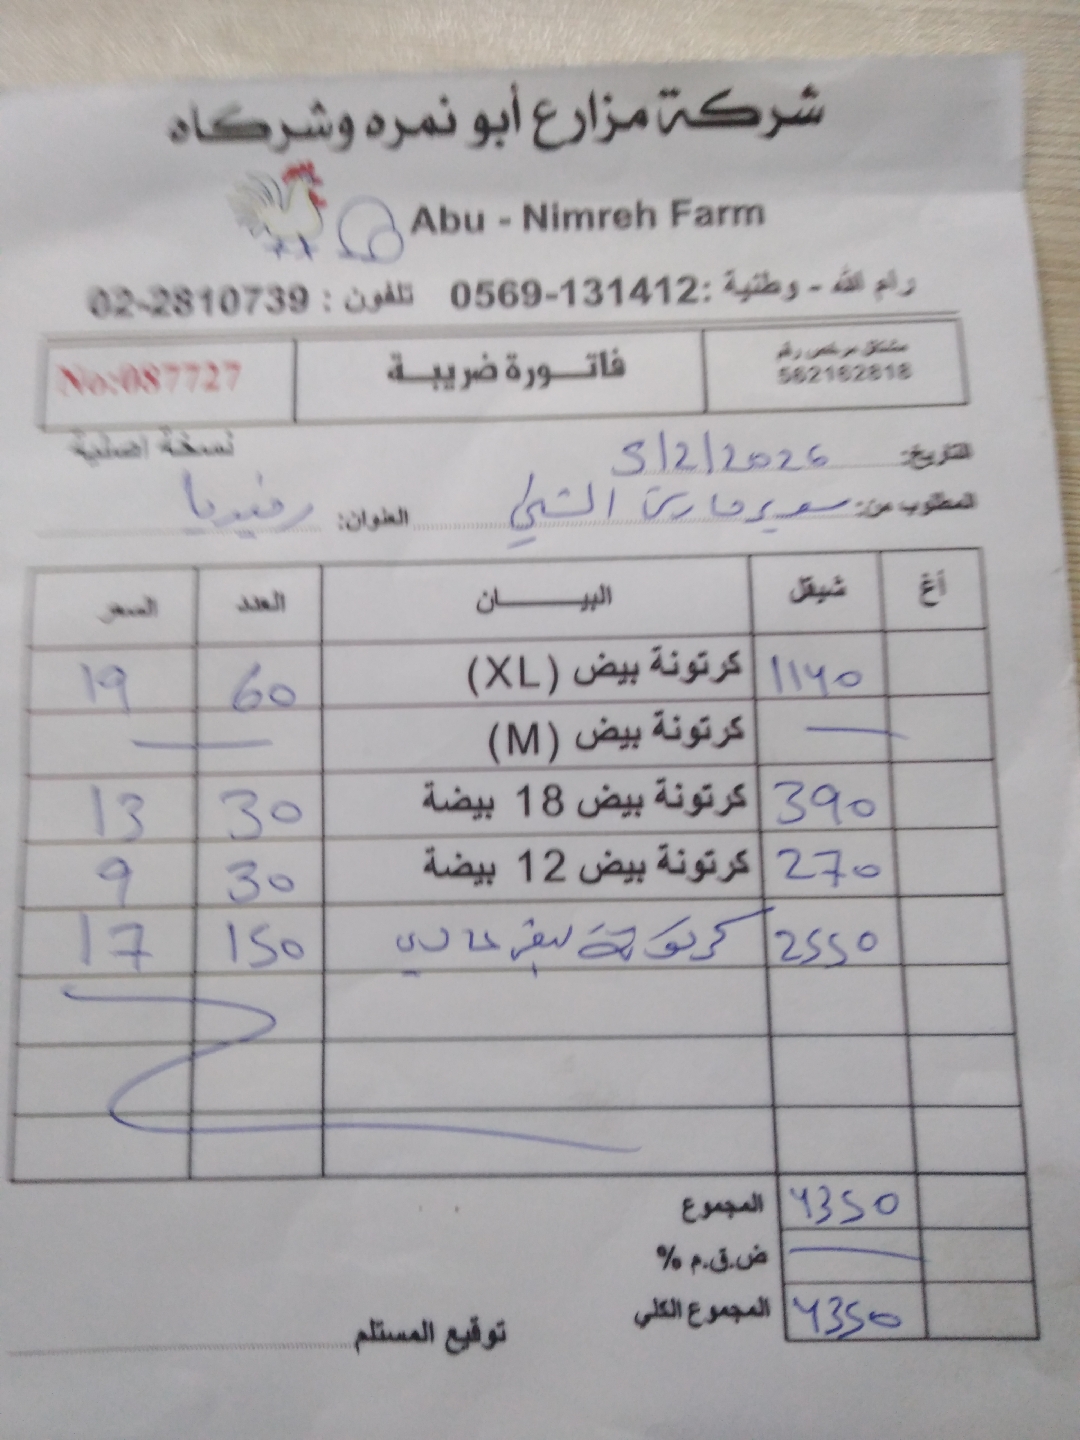 شركة مزارع أبو نمره وشركاه
Abu - Nimreh Farm
رام الله - وطنية :0569-131412 تلفون : 02-2810739
مشتغل مرخص رقم
562162818
فاتـــورة ضريبـة
No:087727
نسخة اصلية
التاريخ: 5/2/2026
المطلوب من: سوبر ماركت الشلبي العنوان: رفيديا
أغ شيقل البيـــــــان العدد السعر
1140 كرتونة بيض (XL) 60 19
كرتونة بيض (M)
390 كرتونة بيض 18 بيضة 30 13
270 كرتونة بيض 12 بيضة 30 9
2550 كرتونة بيض عادي 150 17
المجموع 4350
ض.ق.م %
المجموع الكلي 4350
توقيع المستلم